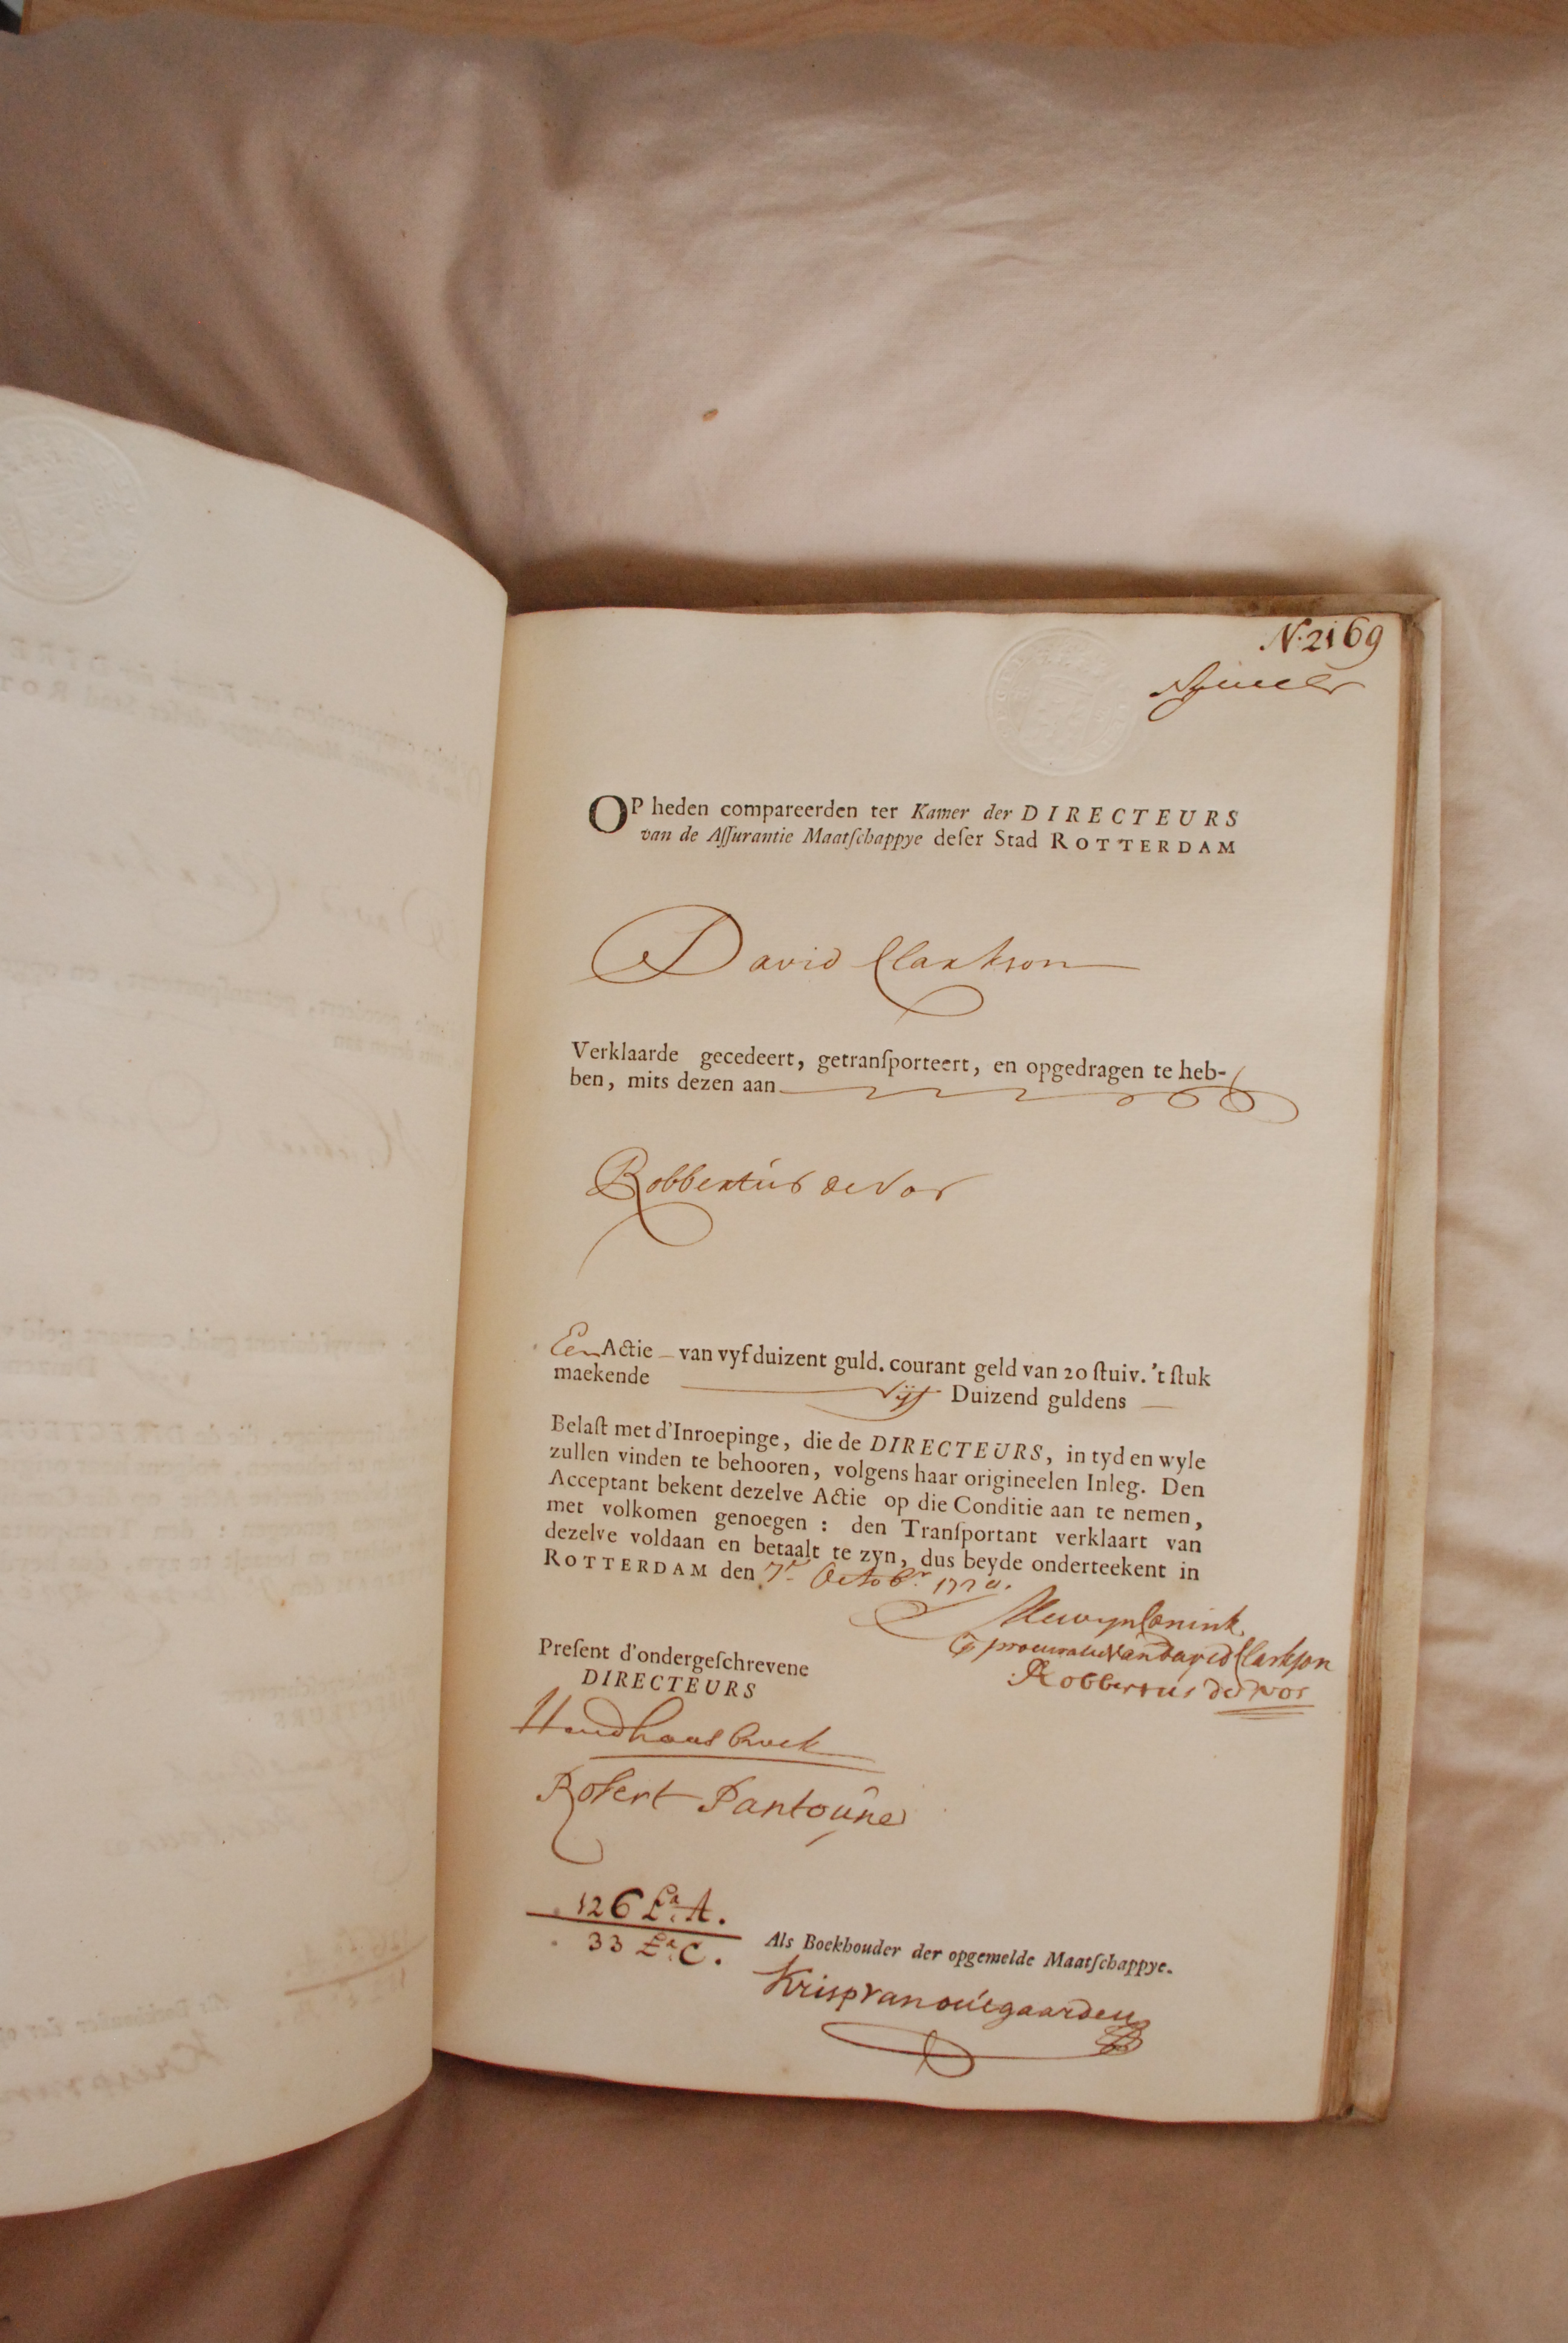 N. 2169
OP heden compareerden ter Kamer der DIRECTEURS
van de Aſſurantie Maatſchappye deſer Stad ROTTERDAM
David Clarkson
Verklaarde gecedeert, getranſporteert, en opgedragen te heb-
ben, mits dezen aan
Robbertús de Vos
Een Actie van vyf duizent guld. courant geld van 20 ſtuiv. 't ſtuk
maekende Vijf Duizend guldens
Belaſt met d'Inroepinge, die de DIRECTEURS, in tyd en wyle
zullen vinden te behooren, volgens haar origineelen Inleg. Den
Acceptant bekent dezelve Actie op die Conditie aan te nemen,
met volkomen genoegen : den Tranſportant verklaart van
dezelve voldaan en betaalt te zyn, dus beyde onderteekent in
ROTTERDAM den 7e Octobr.
procuratie van david Clarkson
Robbertus de vos
Preſent d'ondergeſchrevene
DIRECTEURS
Robert Santoúne
126 La. A.
33 La. C.
Als Boekhouder der opgemelde Maatſchappye.
Krisp van outgaarden